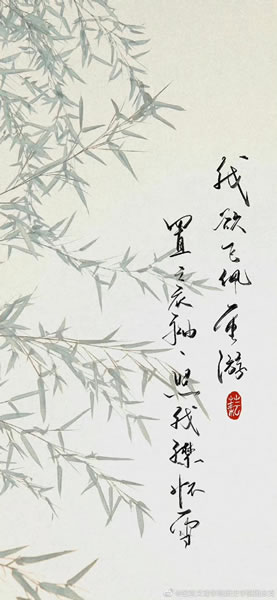 我欲飞佩重游
置之衣袖、照我襟怀雪